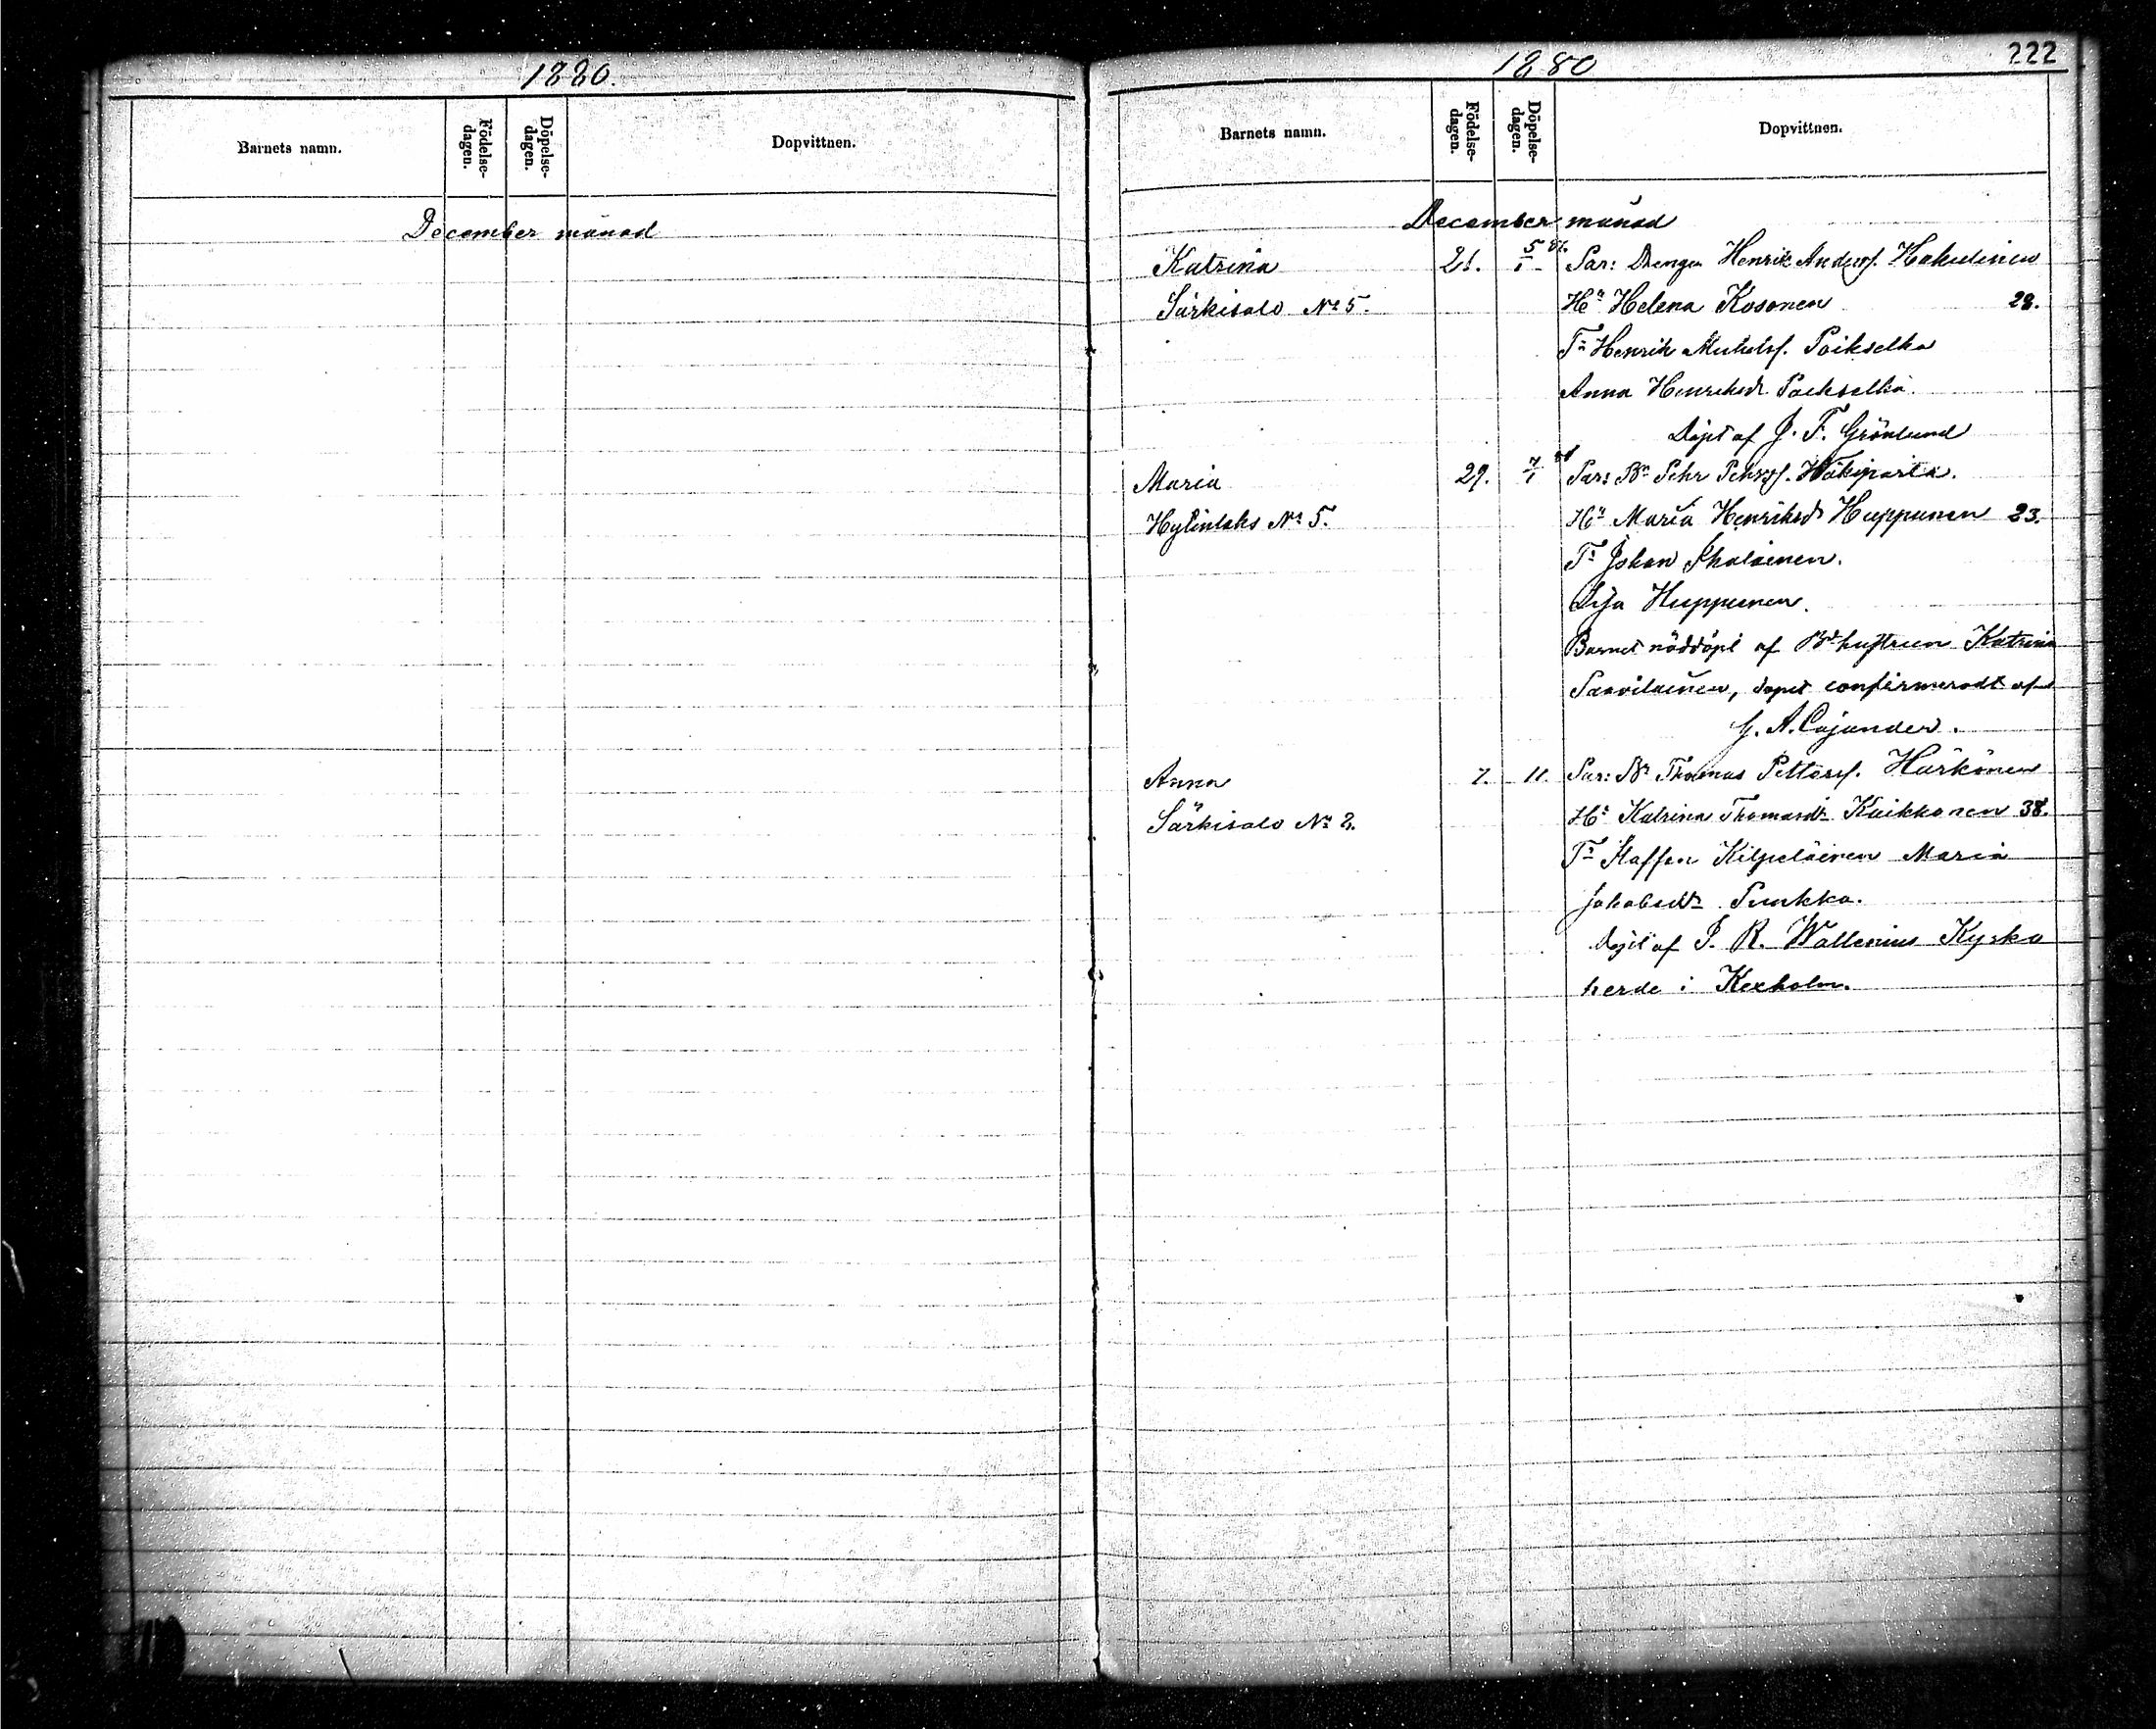 1880.
Barnets namn.
Födelse-
dagen.
Döpelse-
dagen.
Dopvittnen.
December månad
1880
222
Barnets namn.
Födelse-
dagen.
Döpelse-
dagen.
Dopvittnen.
December månad
Katrina 21. 5/1 81. Par: Drengen Henrik Andersf. Hakulinen
Särkisalo No 5. Hu Helena Kosonen 28.
Tn Henrik Michelsf. Poikselkä
Anna Henriksdr Poikselkä.
Döpt af J. F. Grönlund
Maria 29. 7/1 81 Par: Bn Pehr Pehrsf. Wäkiparta.
Hytinlaks No 5. Hu Maria Henriksdr Huppunen 23.
Tn Johan Ihalainen.
Lisa Huppunen.
Barnet nöddöpt af Bdehustrun Katrina
Paavilainen, dopet confirmeradt af
G. A. Cajander.
Anna 7. 11. Par: Bn Thomas Pettersf. Härkönen
Särkisalo No 2. Hu Katrina Thomasdr Kaikkonen 38.
Tn Staffan Kilpeläinen Maria
Jakobsdr Punkka.
Döpt af J. R. Wallenius Kyrko
herde i Kexholm.